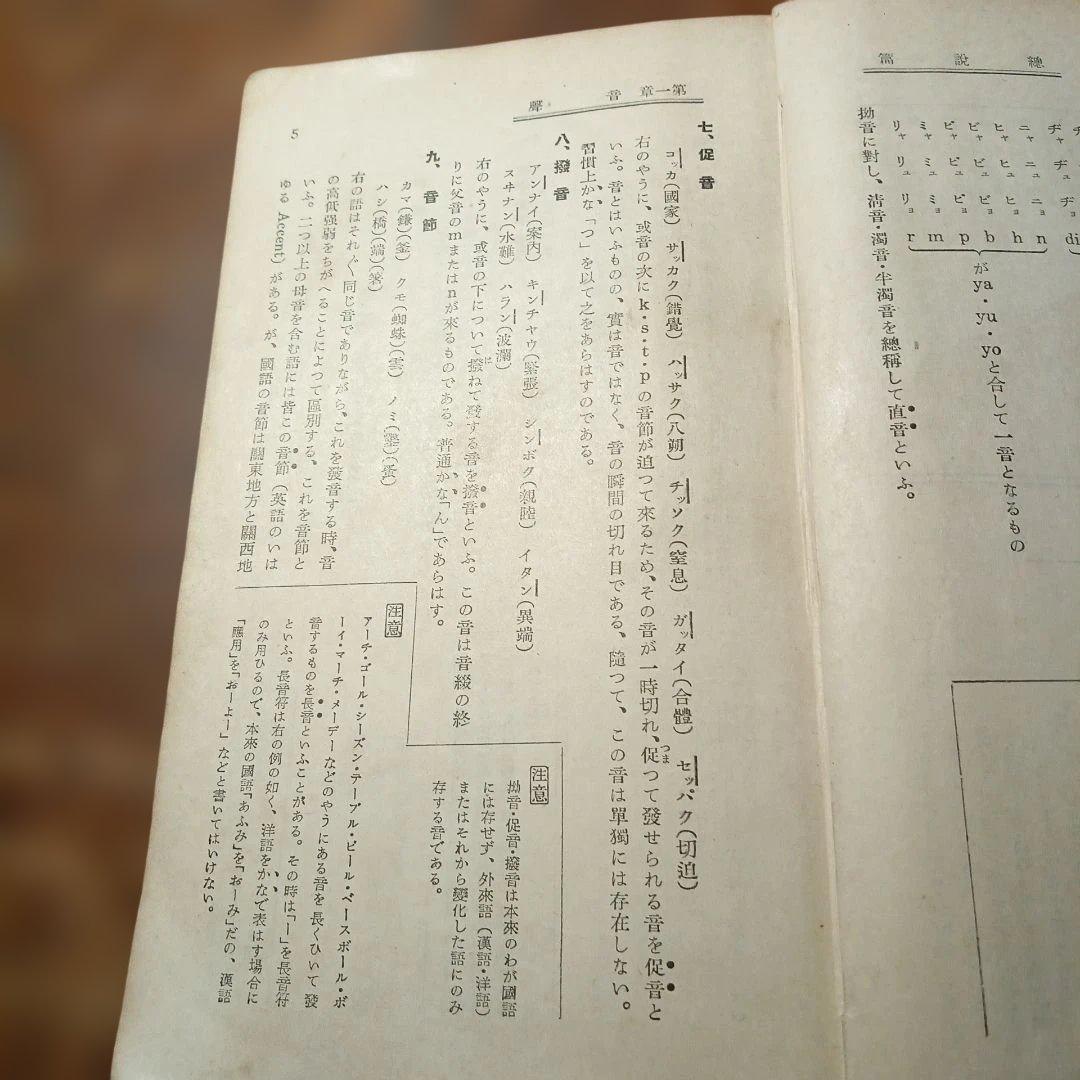 總說篇
ヂャ ヂュ ヂョ di
ニャ ニュ ニョ n
ヒャ ヒュ ヒョ h
ビャ ビュ ビョ b
ピャ ピュ ピョ p
ミャ ミュ ミョ m
リャ リュ リョ r
がya・yu・yoと合して一音となるもの
拗音に對し、淸音・濁音・半濁音を總稱して直音といふ。
第一章 音聲
七、促音
コッカ(國家) サッカク(錯覺) ハッサク(八朔) チッソク(窒息) ガッタイ(合體) セッパク(切迫)
右のやうに、或音の次にk・s・t・pの音節が迫つて來るため、その音が一時切れ、促つて發せられる音を促音と
つま
いふ。音とはいふものの、實は音ではなく、音の瞬間の切れ目である、隨つて、この音は單獨には存在しない。
習慣上、かな「つ」を以て之をあらはすのである。
八、撥音
アンナイ(案內) キンチャウ(緊張) シンボク(親睦) イタン(異端)
スヰナン(水難) ハラン(波瀾)
右のやうに、或音の下について撥ねて發する音を撥音といふ。この音は音綴の終
は
りに父音のmまたはnが來るものである。普通かな「ん」であらはす。
注意
拗音・促音・撥音は本來のわが國語
には存せず、外來語(漢語・洋語)
またはそれから變化した語にのみ
存する音である。
九、音節
カマ(鎌)(釜) クモ(蜘蛛)(雲) ノミ(鑿)(蚤)
ハシ(橋)(端)(箸)
右の語はそれ〴〵同じ音でありながら、これを發音する時、音
の高低强弱をちがへることによつて區別する、これを音節と
いふ。二つ以上の母音を含む語には皆この音節(英語のいは
ゆる Accent)がある。が、國語の音節は關東地方と關西地
注意
アーチ・ゴール・シーズン・テーブル・ビール・ベースボール・ボ
ーイ・マーチ・メーデーなどのやうにある音を長くひいて發
音するものを長音といふことがある。その時は「ー」を長音符
といふ。長音符は右の例の如く、洋語をかなで表はす場合に
のみ用ひるので、本來の國語「あふみ」を「おーみ」だの、漢語
「應用」を「おーよー」などと書いてはいけない。
5